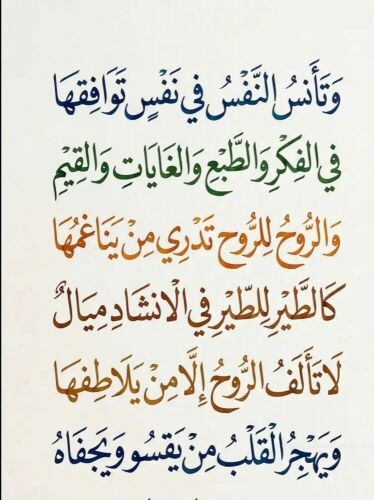 وَتَأنسُ النَّفْسُ في نَفْسٍ تَوَافِقهَا
في الفِكْرِ وَالطَّبْعِ وَالغَايَاتِ وَالقِيْمِ
وَالرُّوحُ لِلرُّوحِ تَدْرِي مِنْ يَنَاغمُهَا
كَالطَّيْرِ لِلطَّيْرِ في الْانشَادِ مِيَالٌ
لَا تَألَفُ الرُّوحُ إلَّا مِنْ يَلَاطِفهَا
وَيَهْجِرُ الْقَلْبُ مِنْ يَقسُو وَيَجفَاهُ